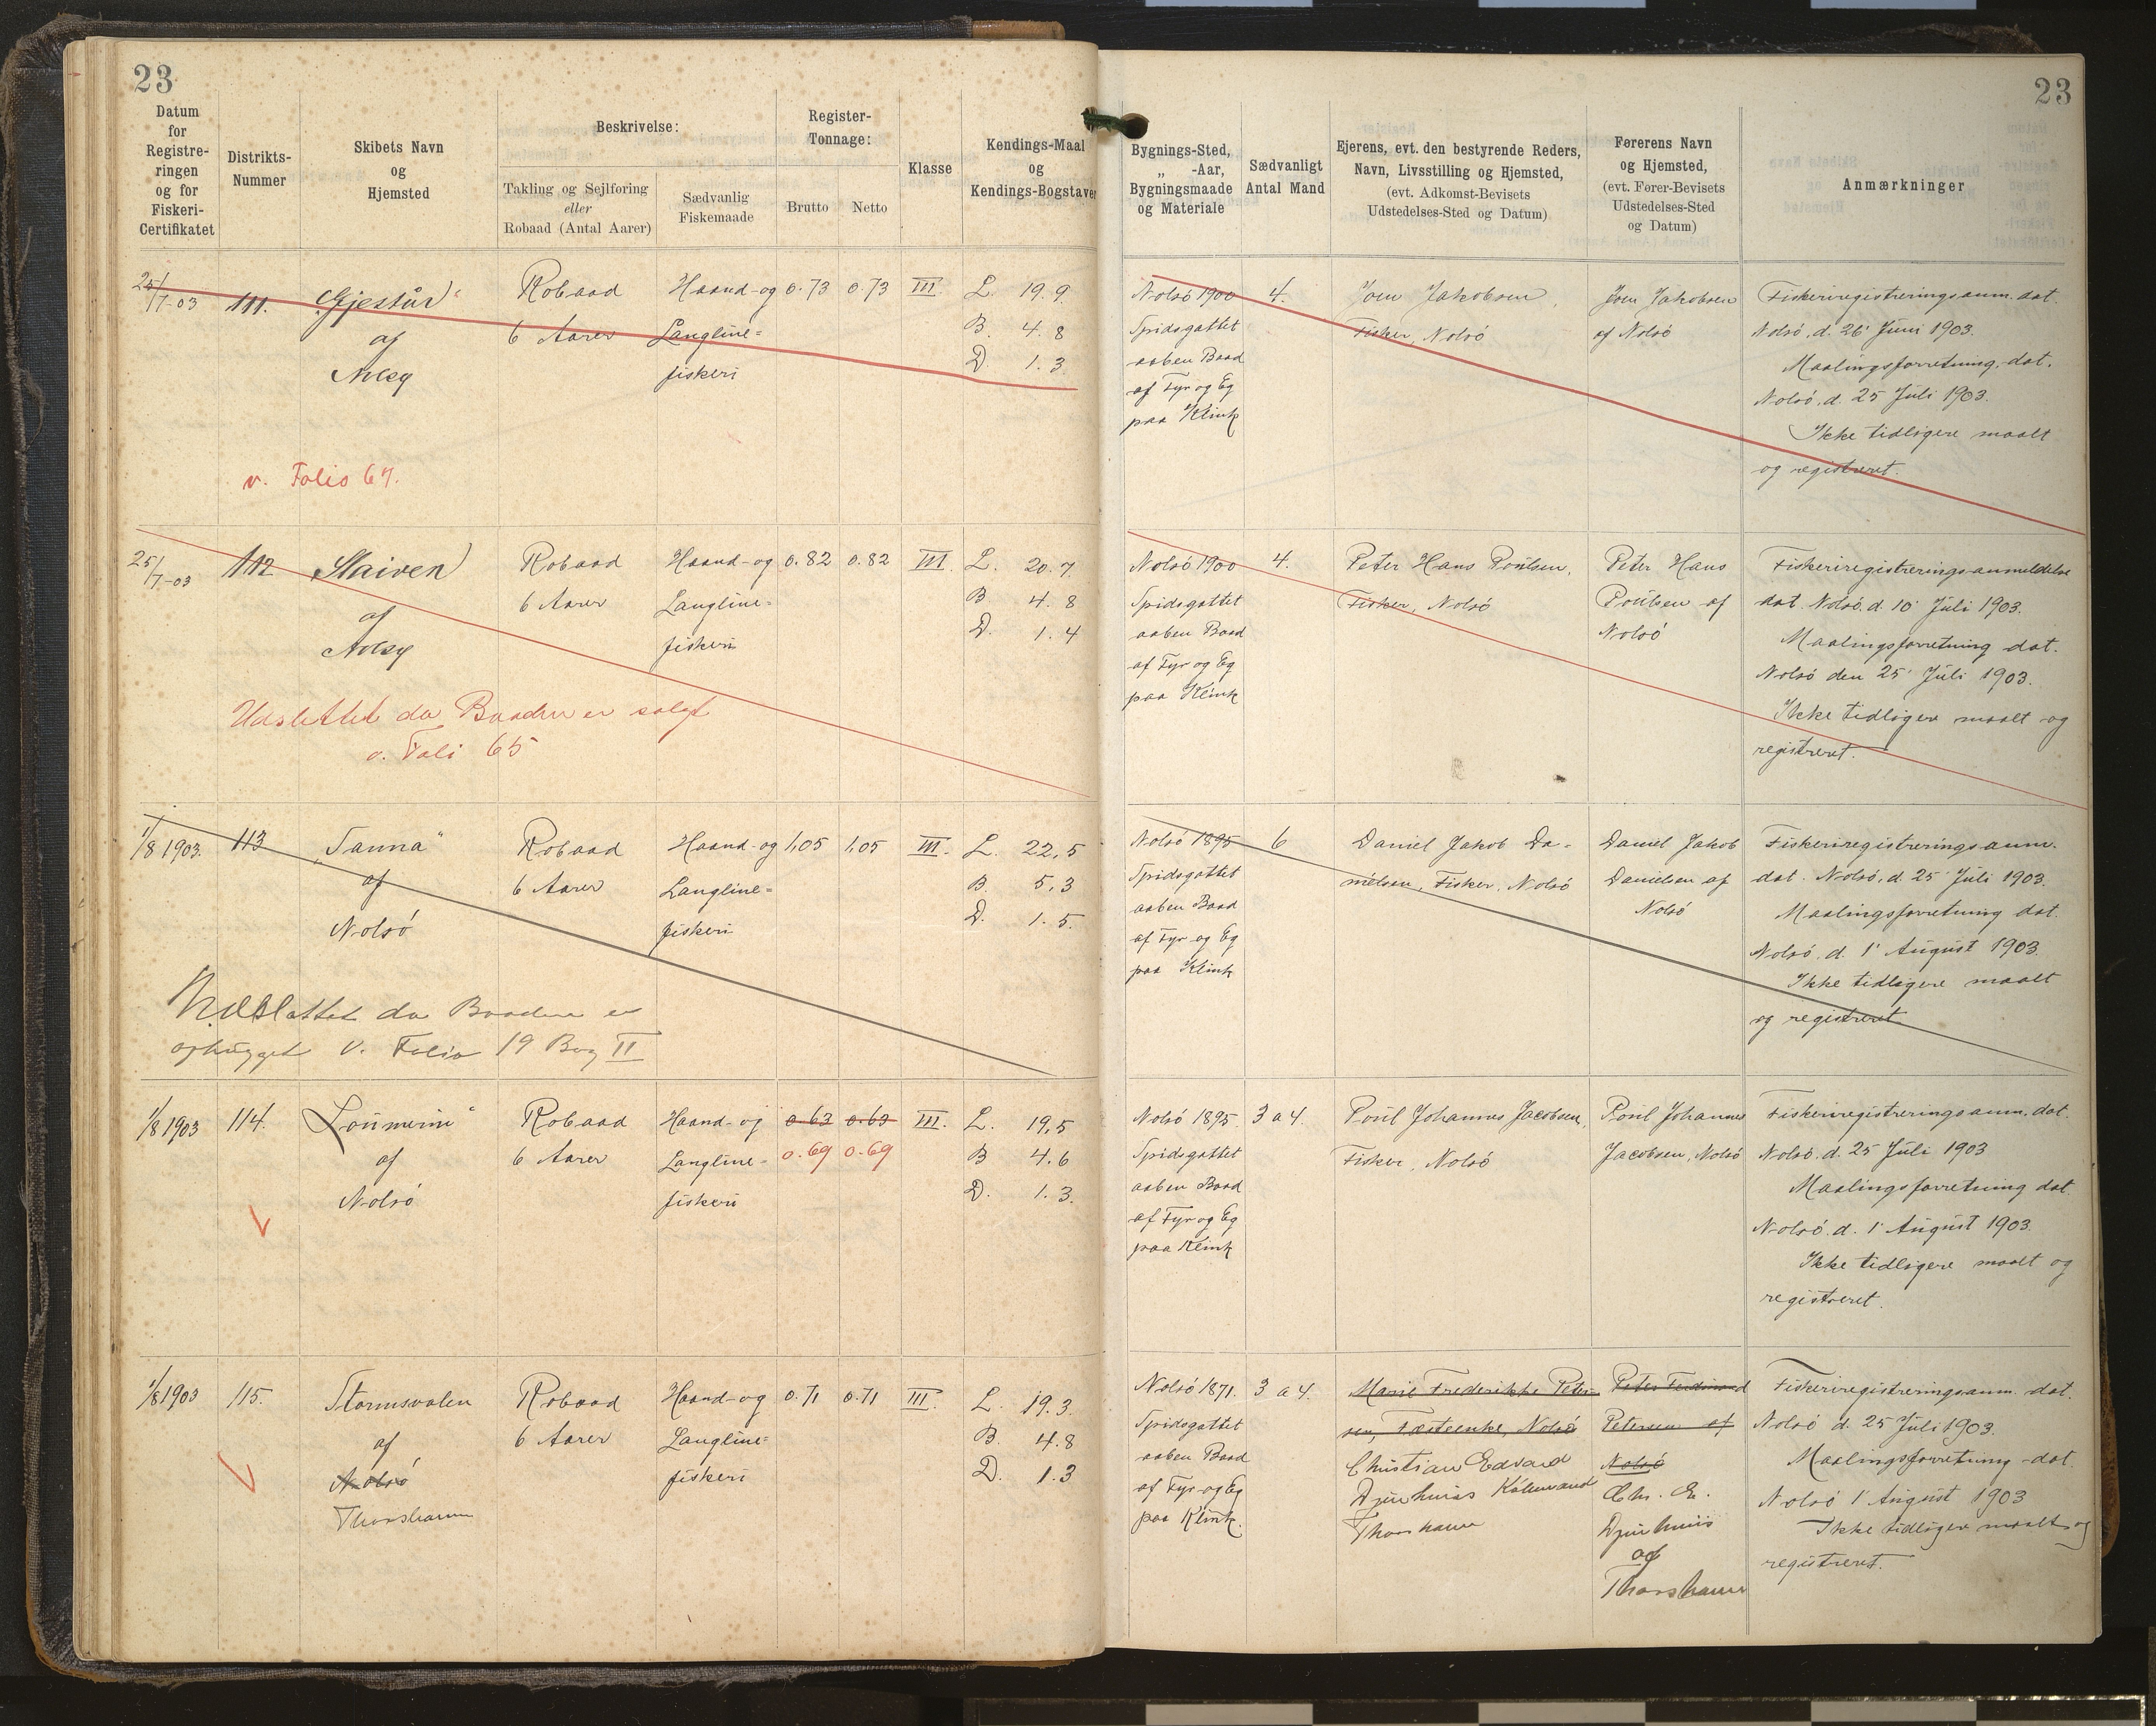 23
23
Datum
for
Registre-
ringen
og for
Fiskeri-
Certifikatet
Distrikts-
Nummer
Skibets Navn
og
Hjemsted
Beskrivelse:
Takling og Sejlføring
eller
Robaad (Antal Aarer)
Sædvanlig
Fiskemaade
Register-
Tonnage:
Brutto
Netto
Klasse
Kendings-Maal
og
Kendings-Bogstaver
Bygnings-Sted,
„ -Aar,
Bygningsmaade
og Materiale
Sædvanligt
Antal Mand
Ejerens, evt. den bestyrende Reders,
Navn, Livsstilling og Hjemsted,
(evt. Adkomst-Bevisets
Udstedelses-Sted og Datum)
Førerens Navn
og Hjemsted,
(evt. Fører-Bevisets
Udstedelses-Sted
og Datum)
Anmærkninger
25/7-03
111.
"Gjestur"
af
Nolsø
Robaad
6 Aarer
Haand- og
Langline=
fiskeri
0.73
0.73
III.
L. 19.9
B. 4.8
D. 1.3
Nolsö 1900
Spidsgattet
aaben Baad
af Fyr og Eg
paa Klink
4.
Joen Jakobsen,
Fisker, Nolsö
Joen Jakobsen
af Nolsö
Fiskeriregistreringsanm. dat.
Nolsö, d. 26' Juni 1903.
Maalingsforretning, dat.
Nolsö, d. 25 Juli 1903.
Ikke tidligere maalt
og registreret.
v. Folio 67.
25/7-03
112
af
Robaad
6 Aarer
Haand- og
Langline=
fiskeri
0.82
0.82
III.
L. 20.7
B 4.8
D. 1.4
Nolsö 1900
Spidsgattet
aaben Baad
af Fyr og Eg
paa Klink
4.
Peter Hans Poulsen,
Fisker, Nolsö
Peter Hans
Poulsen af
Nolsö
Fiskeriregistreringsanmeldelse
dat. Nolsö, d. 10' Juli 1903.
Maalingsforretning dat.
Nolsö den 25' Juli 1903.
Ikke tidligere maalt og
registreret.
Udslettet da Baaden er solgt
v. Foli 65
1/8 1903.
113
"Sanna"
af
Nolsö
Robaad
6 Aarer
Haand- og
Langline=
fiskeri
1,05
1,05
III.
L. 22,5
B. 5,3
D. 1.5.
Nolsö 1895
Spidsgattet
aaben Baad
af Fyr og Eg
paa Klink
6
Daniel Jakob Da-
nielsen, Fisker, Nolsö
Daniel Jakob
Danielsen af
Nolsö
Fiskeriregistreringsanm.
dat. Nolsö, d. 25' Juli 1903.
Maalingsforretning dat.
Nolsö, d. 1' August 1903.
Ikke tidligere maalt
og registreret.
Udslettet da Baaden er
ophugget V. Folio 19 Bog II
1/8 1903
114.
af
Nolsö
Robaad
6 Aarer
Haand- og
Langline-
fiskeri
0.63
0.63
0.69
0.69
III.
L. 19,5
B 4.6
D. 1.3.
Nolsö 1895.
Spidsgattet
aaben Baad
af Fyr og Eg
paa Klink
3 a 4.
Poul Johannes Jacobsen,
Fisker, Nolsö
Poul Johannes
Jacobsen, Nolsö
Fiskeriregistreringsanm. dat.
Nolsö. d. 25 Juli 1903
Maalingsforretning dat.
Nolsö. d. 1' August 1903.
Ikke tidligere maalt og
registreret.
1/8 1903
115.
Stormsvalen
af
Nolsö
Thorshavn
Robaad
6 Aarer
Haand- og
Langline=
fiskeri
0.71
0.71
III.
L. 19.3.
B. 4.8
D. 1.3
Nolsö 1871.
Spidsgattet
aaben Baad
af Fyr og Eg
paa Klink.
3 a 4.
Marie Frederikke Peter-
sen, Fæsteenke, Nolsö
Christian Edvard
Djurhuus Købmand
Thorshavn
Peter Ferdinand
Petersen af
Nolsö
Chr. E.
Djurhuus
af
Thorshavn
Fiskeriregistreringsanm. dat.
Nolsö d. 25 Juli 1903.
Maalingsforretning dat.
Nolsö 1' August 1903
Ikke tidligere maalt og
registreret.